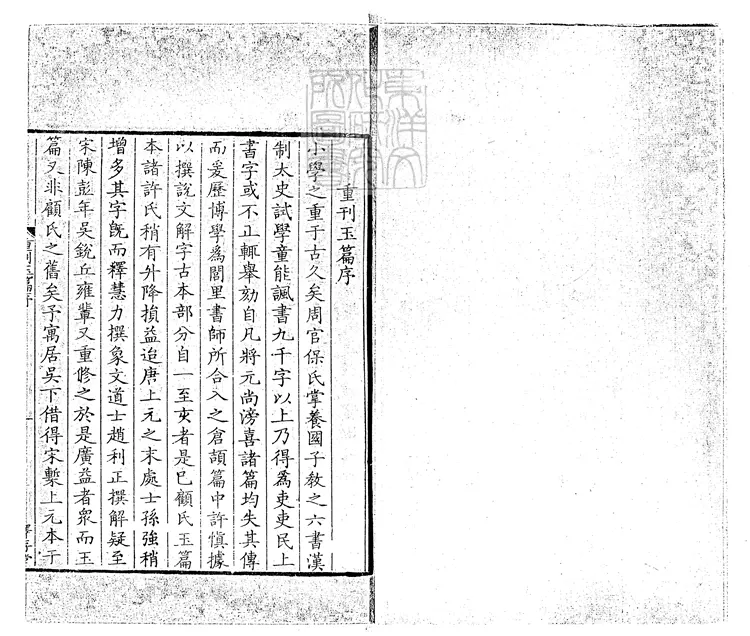 重刊玉篇序
小學之重于古久矣周官保氏掌養國子教之六書漢
制太史試學童能諷書九千字以上乃得爲吏吏民上
書字或不正輒舉劾自凡將元尚滂喜諸篇均失其傳
而爰歷博學爲閭里書師所合入之倉頡篇中許愼據
以撰說文解字古本部分自一至亥者是已顧氏玉篇
本諸許氏稍有外降損益迨唐上元之末處士孫強稍
增多其字旣而釋慧力撰象文道士趙利正撰解疑至
宋陳彭年吳銳丘雍輩又重修之於是廣益者衆而玉
篇又非顧氏之舊矣予寓居吳下借得宋槧上元本于
重刊玉篇序